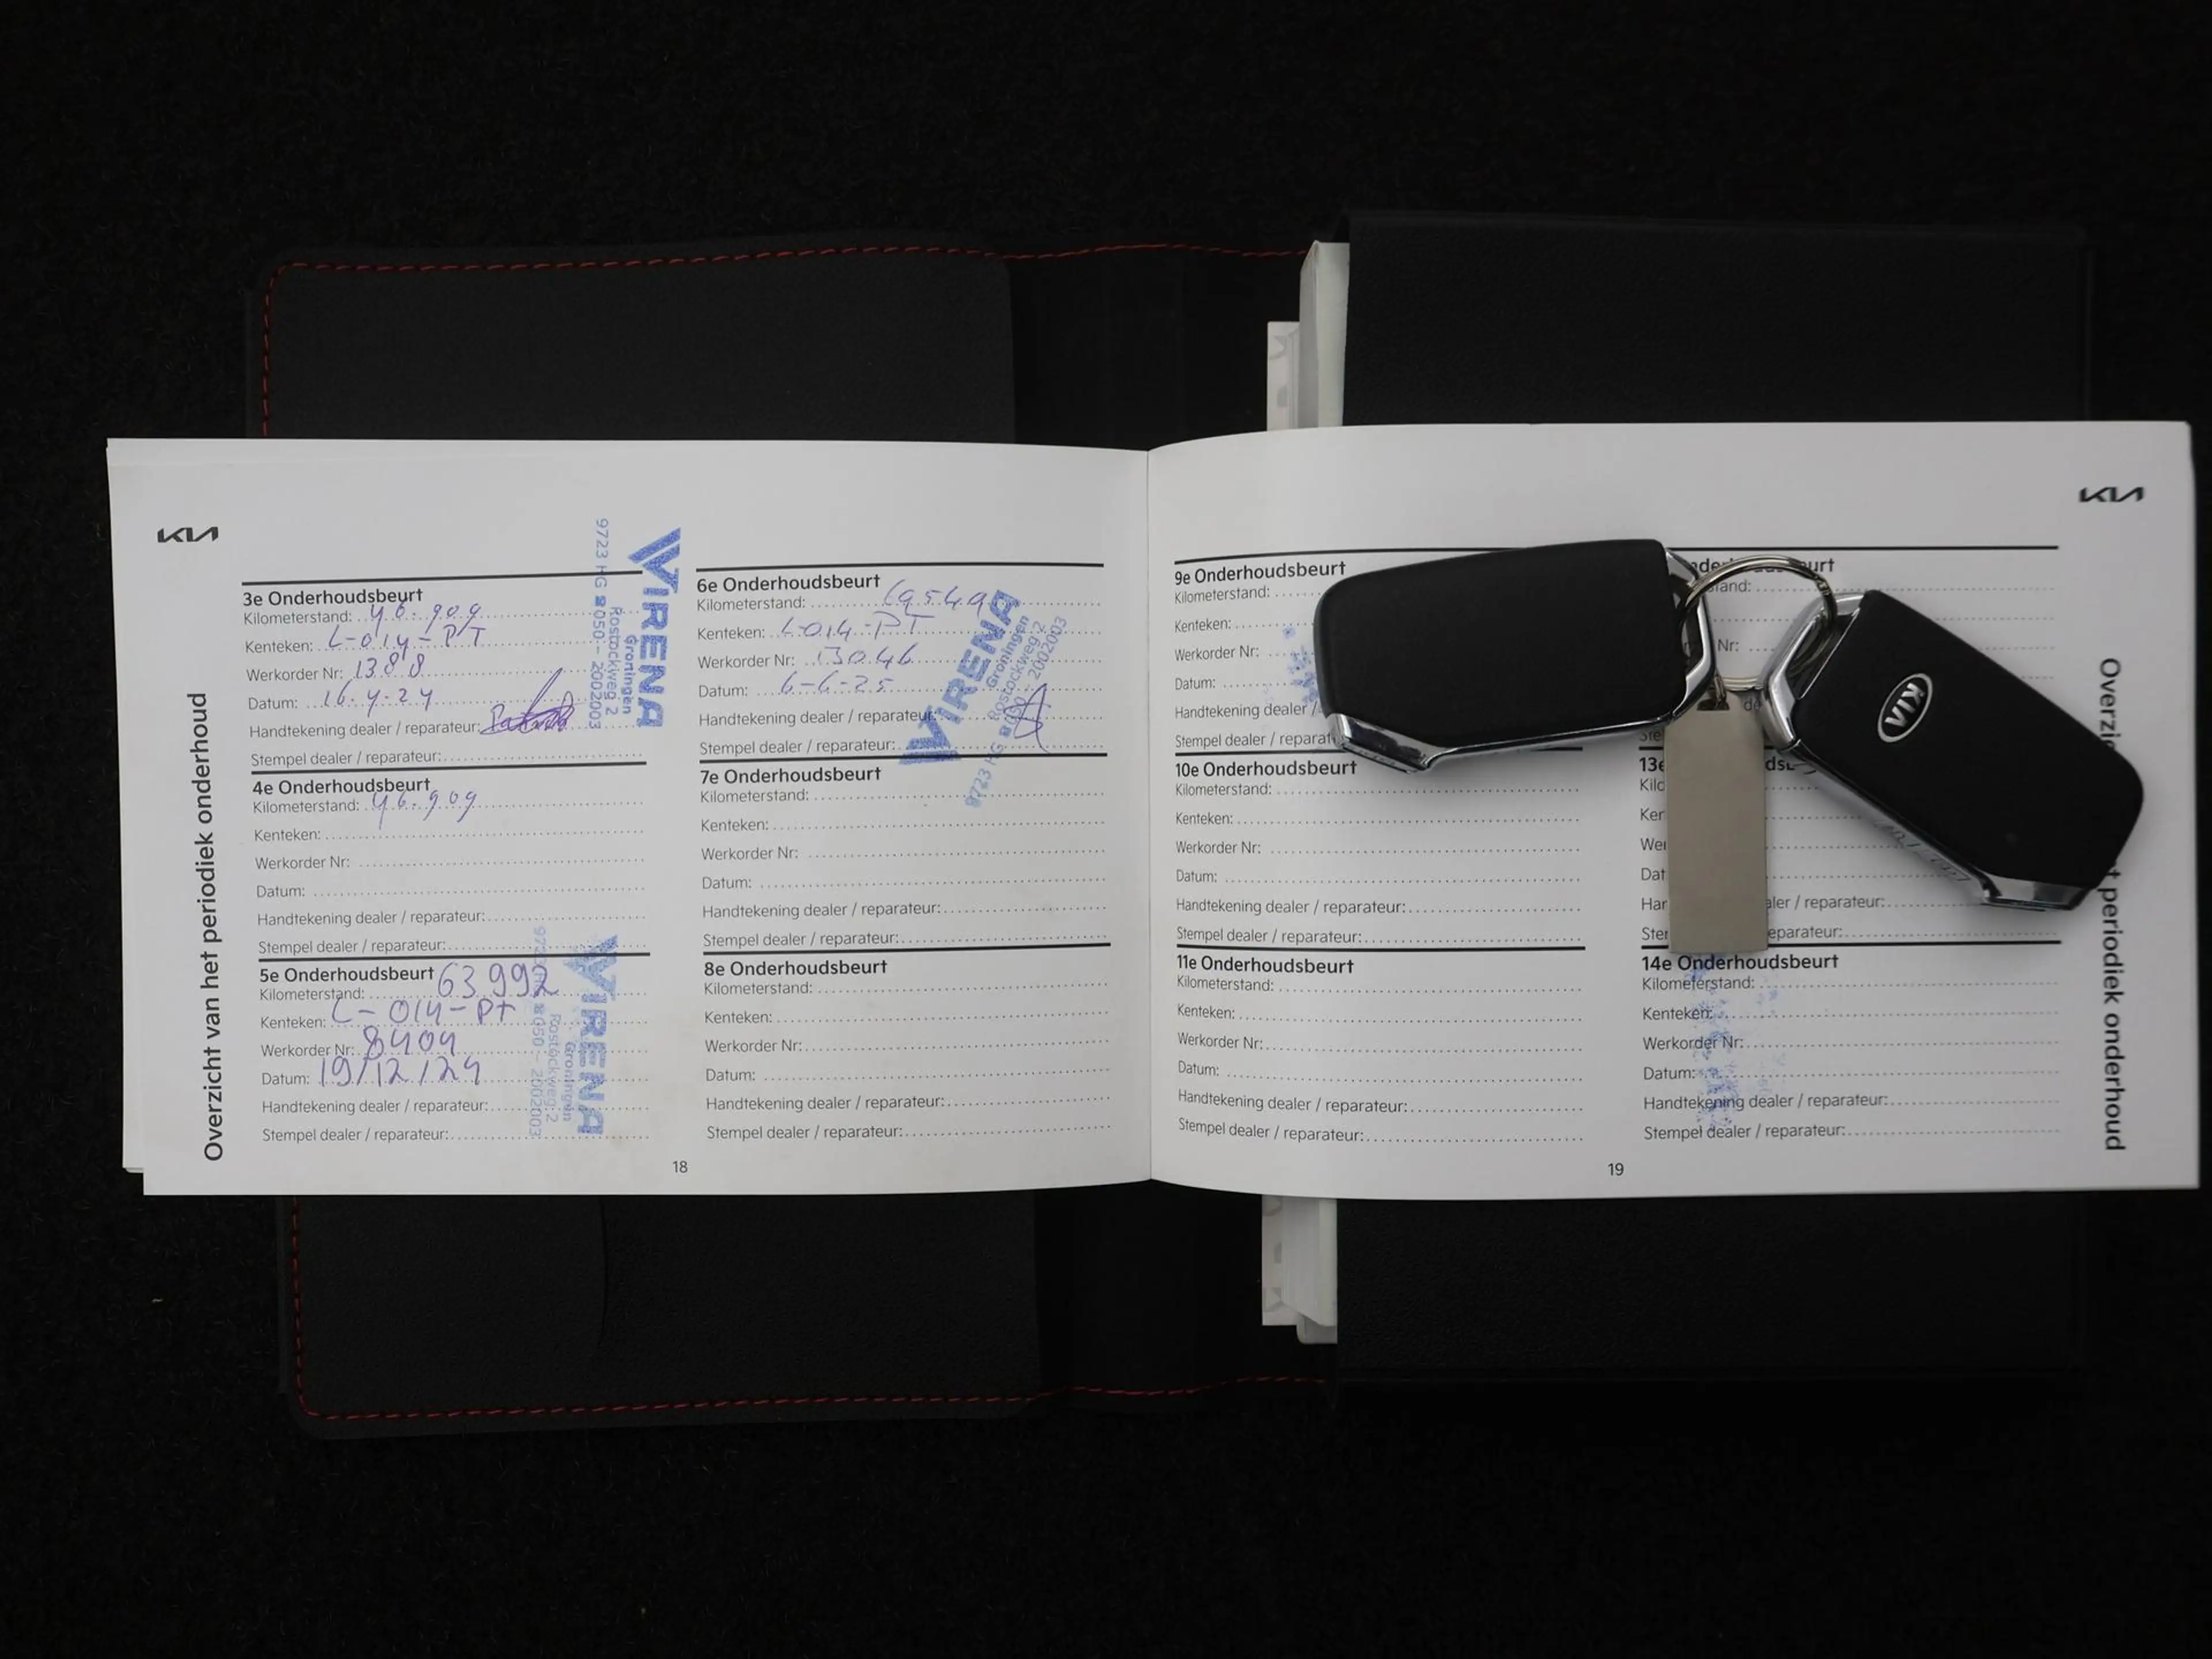 KIA
Overzicht van het periodiek onderhoud
3e Onderhoudsbeurt
Kilometerstand: 46.909
Kenteken: L-014-PT
Werkorder Nr: 1388
Datum: 16.4.24
Handtekening dealer / reparateur:
Stempel dealer / reparateur:
VIRENA
Groningen
Rostockweg 2
9723 HG ☎ 050 - 2002003
4e Onderhoudsbeurt
Kilometerstand: 46.909
Kenteken:
Werkorder Nr:
Datum:
Handtekening dealer / reparateur:
Stempel dealer / reparateur:
5e Onderhoudsbeurt
Kilometerstand: 63992
Kenteken: L-014-PT
Werkorder Nr: 8404
Datum: 19/12/24
Handtekening dealer / reparateur:
Stempel dealer / reparateur:
VIRENA
Groningen
Rostockweg 2
☎ 050 - 2002003
6e Onderhoudsbeurt
Kilometerstand: 69549
Kenteken: L-014-PT
Werkorder Nr: 13046
Datum: 6-6-25
Handtekening dealer / reparateur:
Stempel dealer / reparateur:
VIRENA
Groningen
Rostockweg 2
9723 HG ☎ 050 - 2002003
7e Onderhoudsbeurt
Kilometerstand:
Kenteken:
Werkorder Nr:
Datum:
Handtekening dealer / reparateur:
Stempel dealer / reparateur:
8e Onderhoudsbeurt
Kilometerstand:
Kenteken:
Werkorder Nr:
Datum:
Handtekening dealer / reparateur:
Stempel dealer / reparateur:
18
9e Onderhoudsbeurt
Kilometerstand:
Kenteken:
Werkorder Nr:
Datum:
Handtekening dealer /
Stempel dealer /
10e Onderhoudsbeurt
Kilometerstand:
Kenteken:
Werkorder Nr:
Datum:
Handtekening dealer / reparateur:
Stempel dealer / reparateur:
11e Onderhoudsbeurt
Kilometerstand:
Kenteken:
Werkorder Nr:
Datum:
Handtekening dealer / reparateur:
Stempel dealer / reparateur:
Nr:
13e
reparateur:
14e Onderhoudsbeurt
Kilometerstand:
Kenteken:
Werkorder Nr:
Datum:
Handtekening dealer / reparateur:
Stempel dealer / reparateur:
19
KIA
periodiek onderhoud
KIA